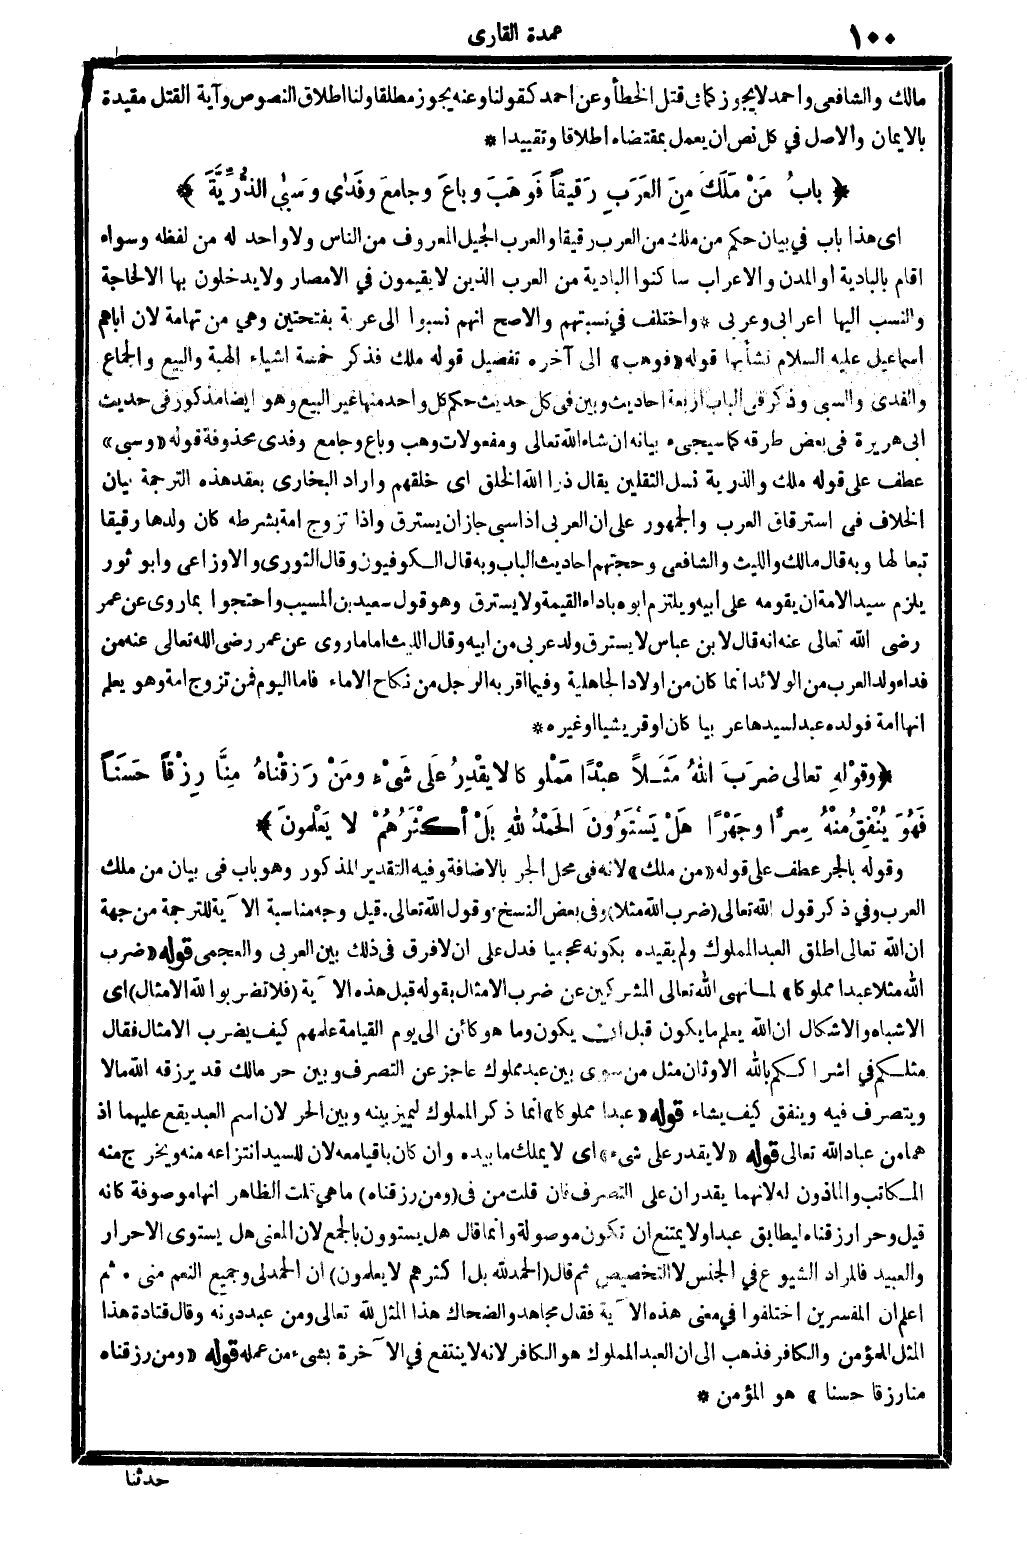 ١٠٠
عمدة القارى
مالك والشافعى واحمد لايجوز كما فى قتل الخطأ وعن احمد كقولنا وعنه يجوز مطلقا ولنا اطلاق النصوص وآية القتل مقيدة
بالايمان والاصل في كل نص ان يعمل بمقتضاه اطلاقا وتقييدا *
﴿ بابُ مَنْ مَلَكَ مِنَ العَرَبِ رَقِيقاً فَوَهَبَ وباعَ وجامعَ وفَدَى وسَبَى الذُّرِّيَّةَ ﴾
اى هذا باب في بيان حكم من ملك من العرب رقيقا والعرب الجيل المعروف من الناس ولا واحد له من لفظه وسواء
اقام بالبادية او المدن والاعراب ساكنوا البادية من العرب الذين لايقيمون في الامصار ولايدخلون بها الا لحاجة
والنسب اليها اعرابى وعربى * واختلف في نسبتهم والاصح انهم نسبوا الى عربة بفتحتين وهي من تهامة لان اباهم
اسماعيل عليه السلام نشأ بها قوله «فوهب» الى آخره تفصيل قوله ملك فذكر خمسة اشياء الهبة والبيع والجماع
والفدى والسبى وذكر فى الباب اربعة احاديث وبين فى كل حديث حكم كل واحد منها غير البيع وهو ايضا مذكور فى حديث
ابى هريرة فى بعض طرقه كما سيجىء بيانه ان شاء الله تعالى ومفعولات وهب وباع وجامع وفدى محذوفة قوله «وسبى»
عطف على قوله ملك والذرية نسل الثقلين يقال ذرا الله الخلق اى خلقهم واراد البخارى بعقد هذه الترجمة بيان
الخلاف فى استرقاق العرب والجمهور على ان العربى اذا سبى جاز ان يسترق واذا تزوج امة بشرطه كان ولدها رقيقا
تبعا لها وبه قال مالك والليث والشافعى وحجتهم احاديث الباب وبه قال الكوفيون وقال الثورى والاوزاعى وابو ثور
يلزم سيد الامة ان يقومه على ابيه ويلتزم ابوه باداء القيمة ولا يسترق وهو قول سعيد بن المسيب واحتجوا بما روى عن عمر
رضى الله تعالى عنه انه قال لابن عباس لا يسترق ولد عربى من ابيه وقال الليث اما ما روى عن عمر رضى الله تعالى عنه من
فداء ولد العرب من الولائد انما كان من اولاد الجاهلية وفيما اقر به الرجل من نكاح الاماء فاما اليوم فمن تزوج امة وهو يعلم
انها امة فولده عبد لسيدها عربيا كان او قريشيا او غيره *
﴿ وقولِهِ تعالى ضرَبَ اللهُ مَثَلاً عبْدًا مَمْلوكا لا يقْدِرُ عَلَى شَىْءٍ ومَنْ رَزقْناهُ مِنَّا رِزْقاً حَسَناً
فَهُوَ يُنْفِقُ مِنْهُ سِراًّ وجَهْرًا هَلْ يَسْتَوُونَ الحَمْدُ للهِ بَلْ أكْثَرُهُمْ لا يَعْلَمونَ ﴾
وقوله بالجر عطف على قوله «من ملك» لانه فى محل الجر بالاضافة وفيه التقدير المذكور وهو باب فى بيان من ملك
العرب وفي ذكر قول الله تعالى (ضرب الله مثلا) وفى بعض النسخ وقول الله تعالى. قيل وجه مناسبة الآية للترجمة من جهة
ان الله تعالى اطلق العبد المملوك ولم يقيده بكونه عجميا فدل على ان لا فرق فى ذلك بين العربى والعجمى قوله «ضرب
الله مثلا عبدا مملوكا» لما نهى الله تعالى المشركين عن ضرب الامثال بقوله قبل هذه الآية (فلا تضربوا لله الامثال) اى
الاشباه والاشكال ان الله يعلم ما يكون قبل ان يكون وما هو كائن الى يوم القيامة علمهم كيف يضرب الامثال فقال
مثلكم في اشراككم بالله الاوثان مثل من سوى بين عبد مملوك عاجز عن التصرف وبين حر مالك قد يرزقه الله مالا
ويتصرف فيه وينفق كيف يشاء قوله «عبدا مملوكا» انما ذكر المملوك ليميز بينه وبين الحر لان اسم العبد يقع عليهما اذ
هما من عباد الله تعالى قوله «لا يقدر على شىء» اى لا يملك ما بيده وان كان باقيا معه لان للسيد انتزاعه منه ويخرج منه
المكاتب والماذون له لانهما يقدران على التصرف فان قلت من فى (ومن رزقناه) ما هي قلت الظاهر انها موصوفة كانه
قيل وحرا رزقناه ليطابق عبدا ولا يمتنع ان تكون موصولة وانما قال هل يستوون بالجمع لان المعنى هل يستوى الاحرار
والعبيد فالمراد الشيوع في الجنس لا التخصيص ثم قال (الحمد لله بل اكثرهم لا يعلمون) ان الحمد لى وجميع النعم منى . ثم
اعلم ان المفسرين اختلفوا في معنى هذه الآية فقال مجاهد والضحاك هذا المثل لله تعالى ومن عبد دونه وقال قتادة هذا
المثل للمؤمن والكافر فذهب الى ان العبد المملوك هو الكافر لانه لا ينتفع في الآخرة بشىء من عمله قوله «ومن رزقناه
منا رزقا حسنا» هو المؤمن *
حدثنا